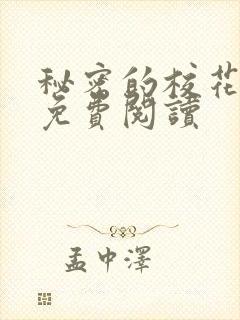 秘密的校花
免費閱讀
孟中澤